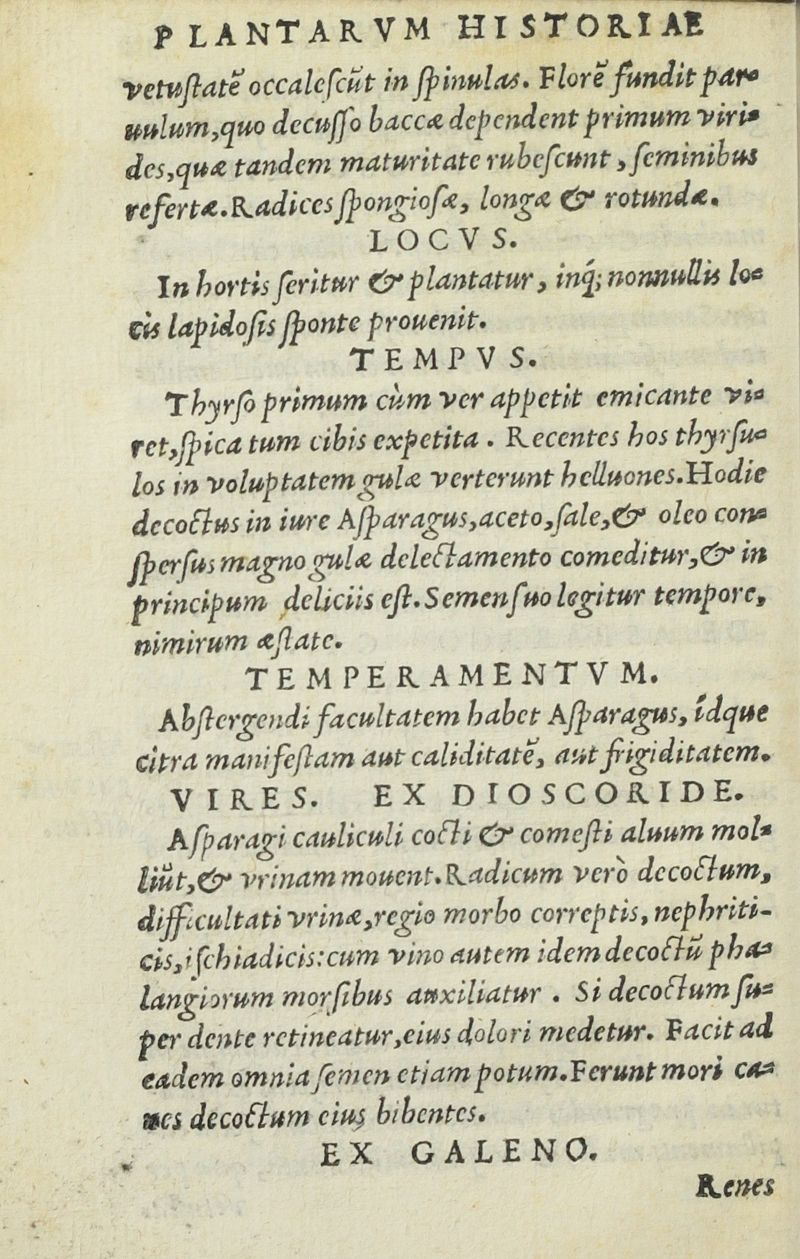 PLANTARVM HISTORIAE
vetuſtatē occaleſcūt in ſpinulas. Florē fundit par-
uulum, quo decuſſo baccæ dependent primum viri-
des, quæ tandem maturitate rubeſcunt, ſeminibus
refertæ. Radices ſpongioſæ, longæ & rotundæ.
LOCVS.
In hortis ſeritur & plantatur, inq́; nonnullis lo-
cis lapidoſis ſponte prouenit.
TEMPVS.
Thyrſo primum cùm ver appetit emicante vi-
ret, ſpica tum cibis expetita. Recentes hos thyrſu-
los in voluptatem gulæ verterunt helluones. Hodie
decoctus in iure Aſparagus, aceto, ſale, & oleo con-
ſperſus magno gulæ delectamento comeditur, & in
principum deliciis eſt. Semen ſuo legitur tempore,
nimirum æſtate.
TEMPERAMENTVM.
Abſtergendi facultatem habet Aſparagus, ídque
citra manifeſtam aut caliditatē, aut frigiditatem.
VIRES. EX DIOSCORIDE.
Aſparagi cauliculi cocti & comeſti aluum mol-
liūt, & vrinam mouent. Radicum verò decoctum,
difficultati vrinæ, regio morbo correptis, nephriti-
cis, iſchiadicis: cum vino autem idem decoctū pha-
langiorum morſibus auxiliatur. Si decoctum ſu-
per dente retineatur, eius dolori medetur. Facit ad
eadem omnia ſemen etiam potum. Ferunt mori ca-
nes decoctum eius bibentes.
EX GALENO.
Renes